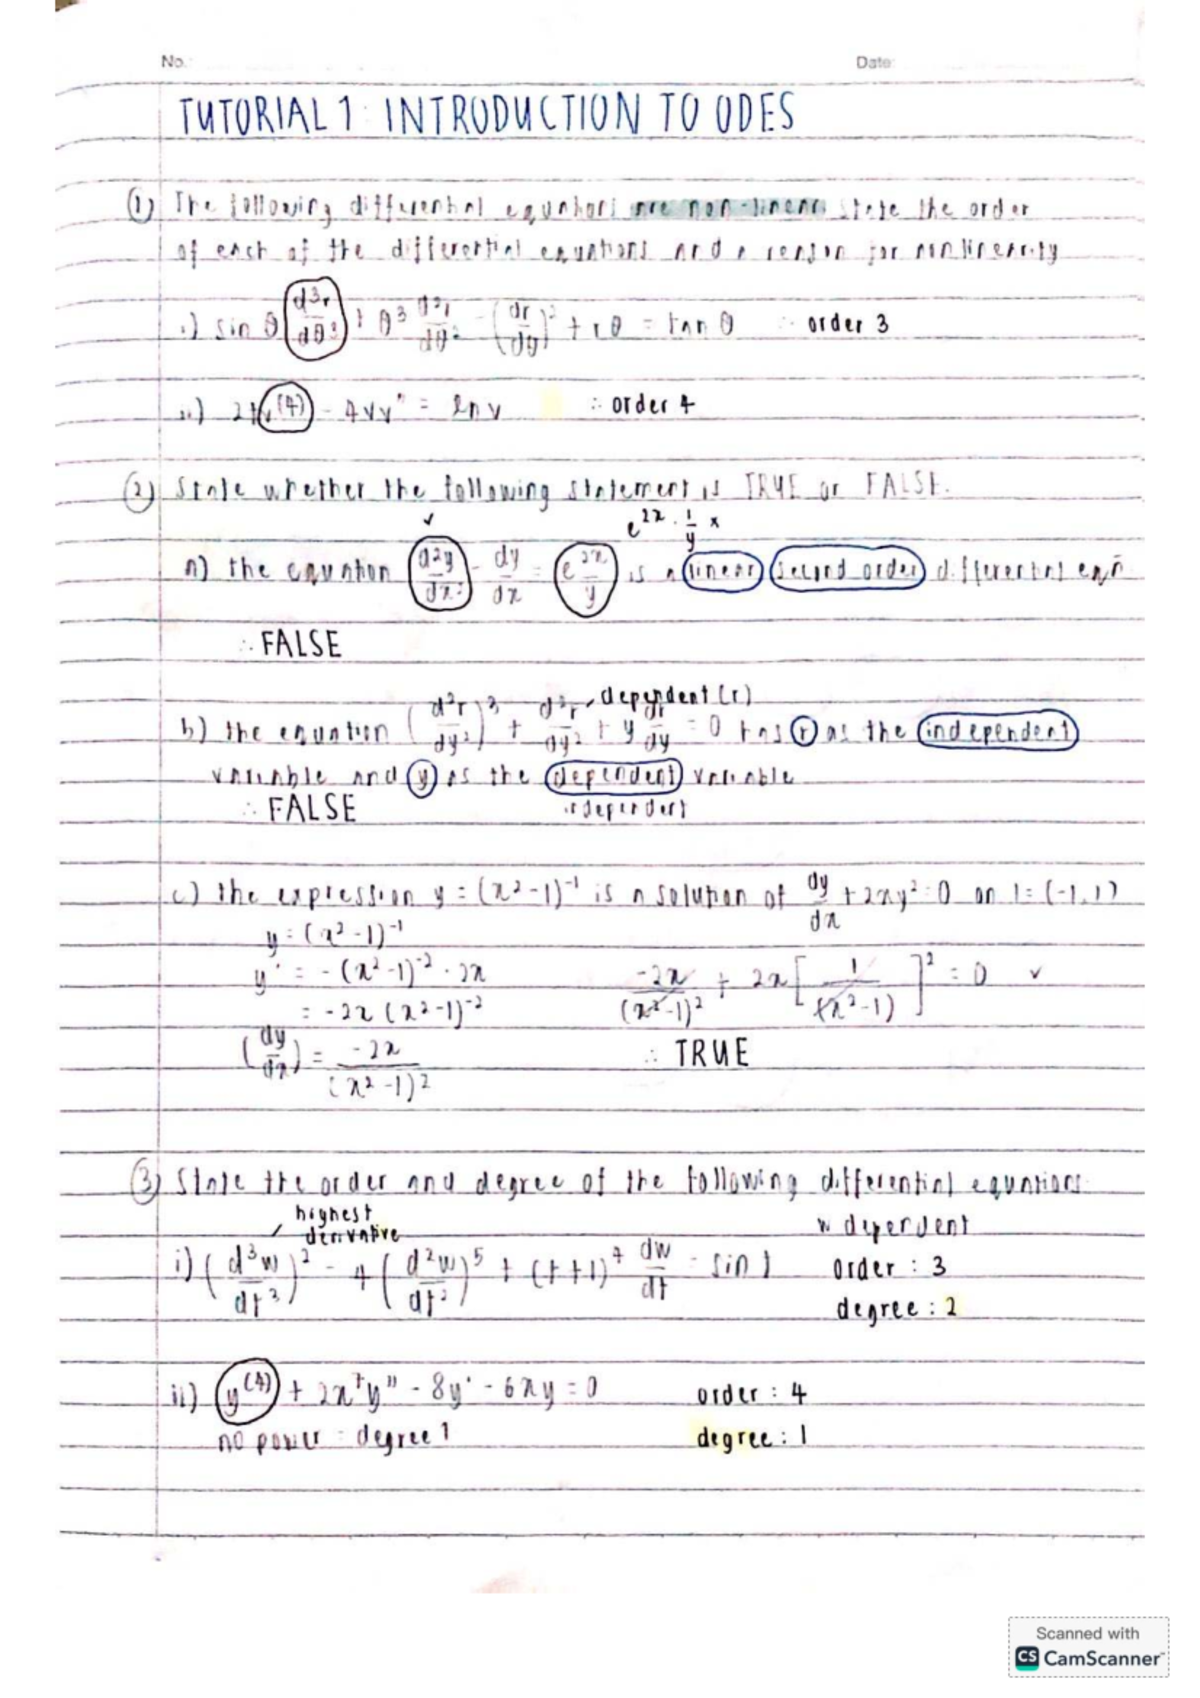 No.
Date:
TUTORIAL 1 : INTRODUCTION TO ODES
① The following differential equations are non-linear. State the order
of each of the differential equations and a reason for nonlinearity
i.) sin θ d³r/dθ³ + θ³ d²r/dθ² - (dr/dy)³ + rθ = tan θ ∴ order 3
ii.) v⁽⁴⁾ - 4vv" = ln v ∴ order 4
② State whether the following statement is TRUE or FALSE.
e²ˣ · 1/y x
a) the equation d²y/dx² - dy/dx = e²ˣ/y is a linear second order differential eqn
∴ FALSE
dependent (r)
b) the equation (d²r/dy²)³ + d²r/dy² + y dr/dy = 0 has r as the independent
variable and y as the dependent variable
∴ FALSE independent
c) the expression y = (x²-1)⁻¹ is a solution of dy/dx + 2xy² = 0 on I = (-1,1)
y = (x²-1)⁻¹
y' = -(x²-1)⁻² · 2x -2x/(x²-1)² + 2x[1/(x²-1)]² = 0 ✓
= -2x (x²-1)⁻²
(dy/dx) = -2x/(x²-1)² ∴ TRUE
③ State the order and degree of the following differential equations
highest derivative w dependent
i) (d³w/dt³)² - 4(d²w/dt²)⁵ + (t+1)⁴ dw/dt = sin t order : 3
degree : 2
ii) y⁽⁴⁾ + 2x⁷y" - 8y' - 6xy = 0 order : 4
no power = degree 1 degree : 1
Scanned with
CS CamScanner